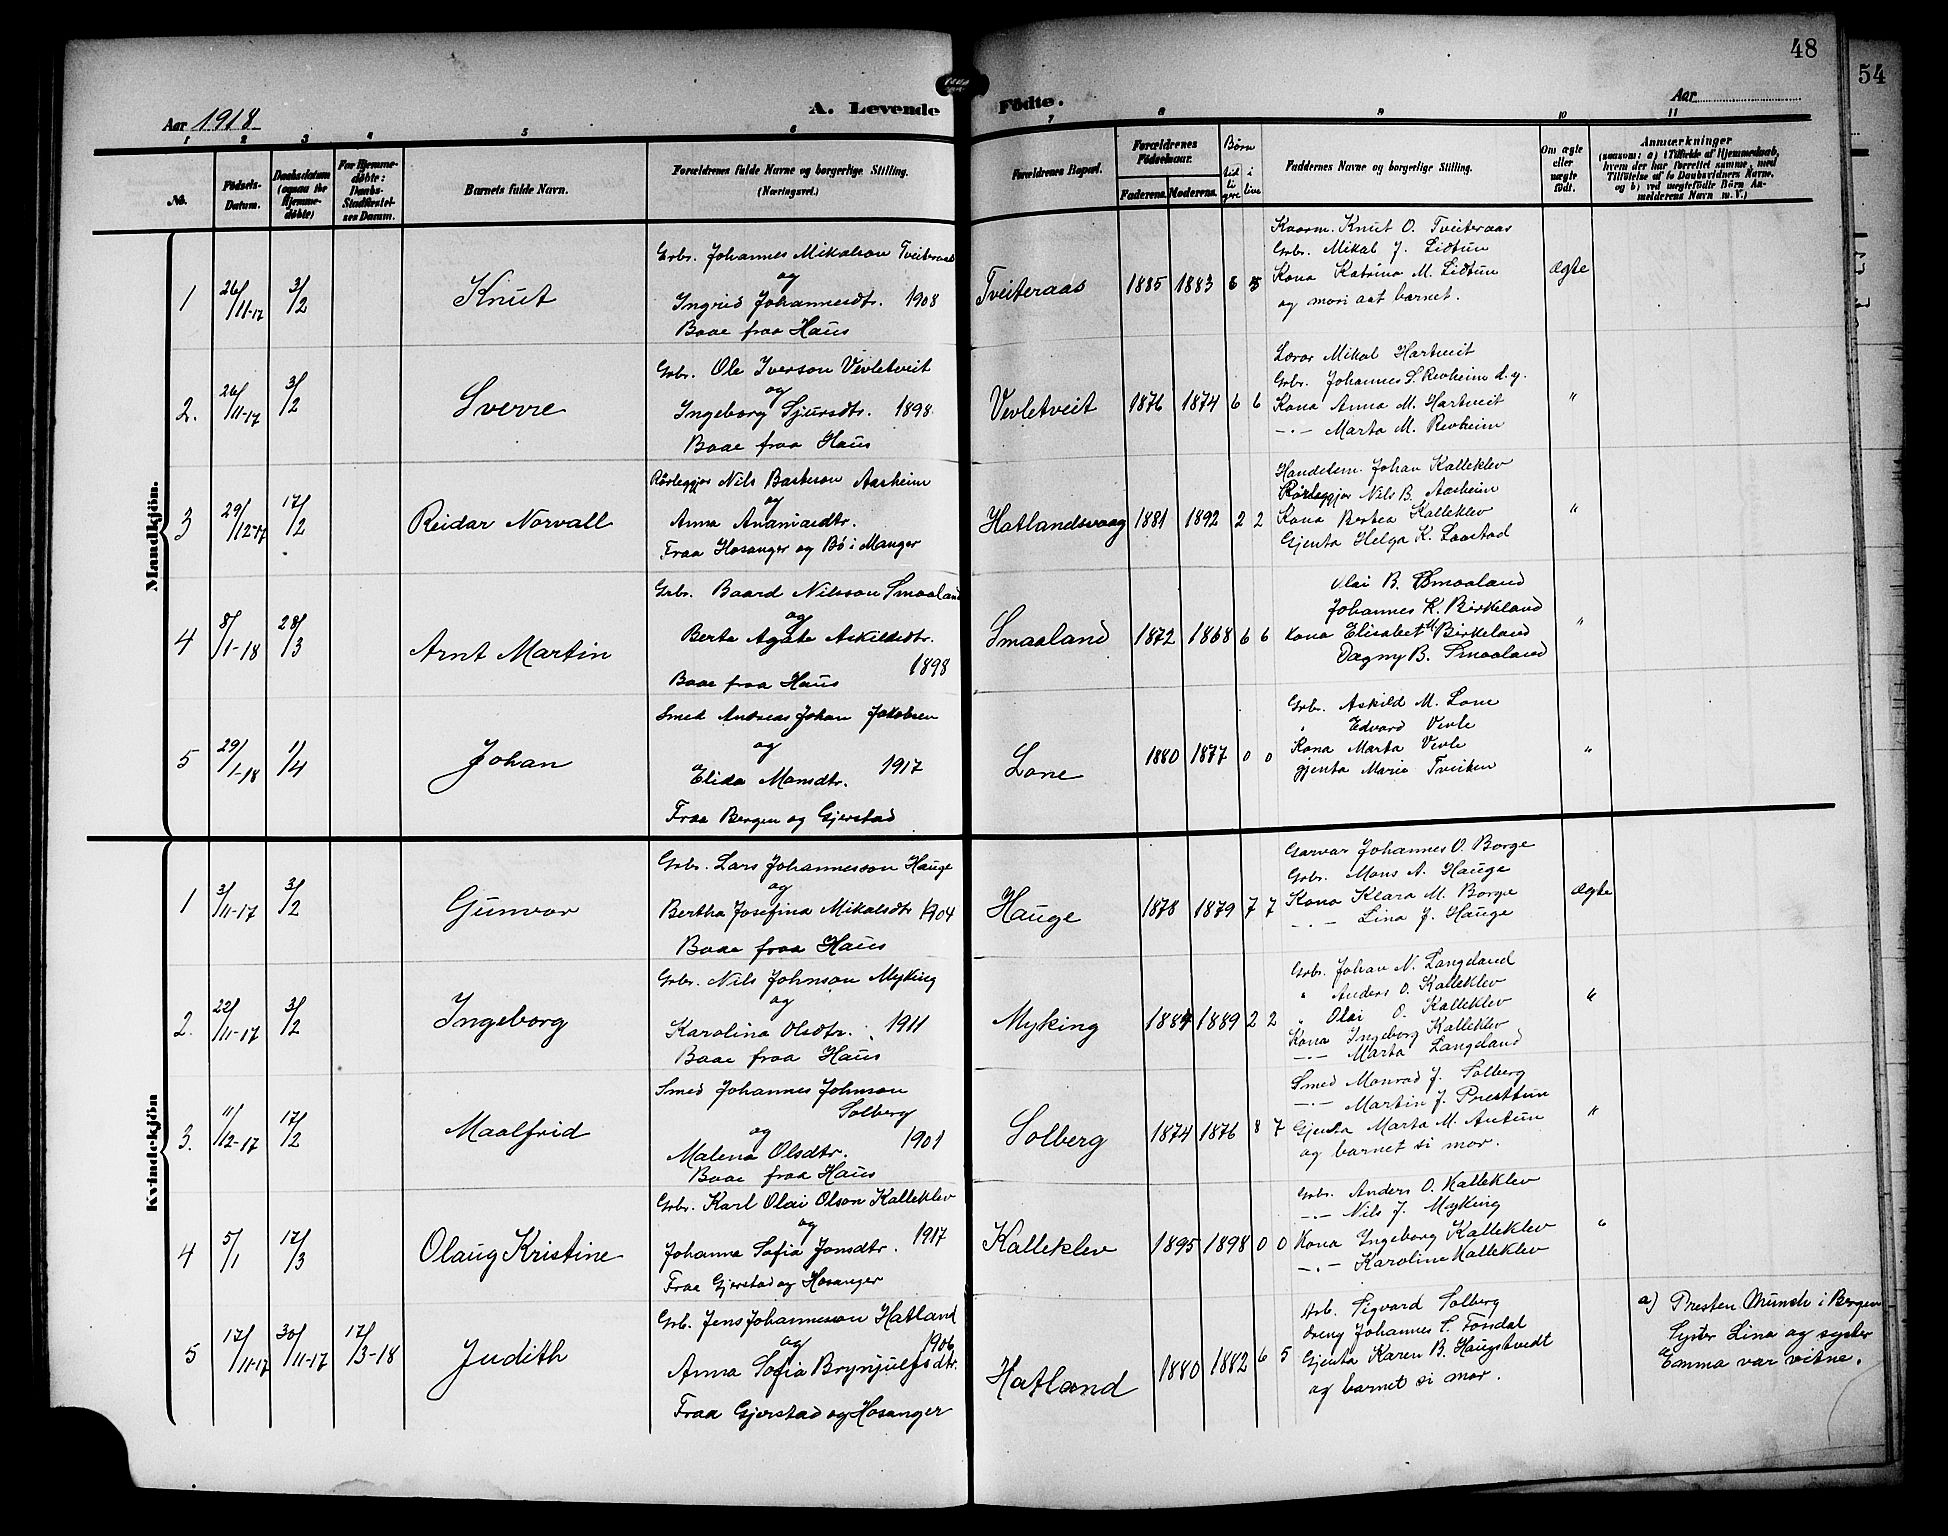 48
54
A. Levende Fødte.
Aar 1918
Aar
1 2 3 4 5 6 7 8 9 10 11
No.
Fødsels-Datum.
Daabsdatum (ogsaa for Hjemmedøbte)
For Hjemmedøbte: Daabs-Stadfæstelses Datum.
Barnets fulde Navn.
Forældrenes fulde Navne og borgerlige Stilling. (Næringsvei.)
Forældrenes Bopæl.
Forældrenes Fødselsaar.
Faderens. Moderens.
Børn
tidligere i live
Faddernes Navne og borgerlige Stilling.
Om ægte eller uægte født.
Anmærkninger
(saasom: a) i Tilfælde af Hjemmedaab, hvem der har forrettet samme, med Tilføielse af to Daabsvidners Navne, og b) ved uægtefødte Børn Anmelderens Navn m. V.)
Mandkjøn.
1 26/11-17 3/2 Knut
Grb. Johannes Mikalson Tveiteraas
og
Ingrid Johannesdtr. 1908
Baae fraa Haus
Tveiteraas 1885 1883 6 5
Kaarm. Knut O. Tveiteraas
Grb. Mikal J. Lidtun
Kona Katrina M. Lidtun
og mori aat barnet.
Ægte
2. 26/11-17 3/2 Sverre
Grb. Ole Iverson Vevletveit
og
Ingeborg Sjursdtr. 1898
Baae fraa Haus
Vevletveit 1876 1874 6 6
Lærar Mikal Hartveit
Grb. Johannes S. Revheim d.y.
Kona Anna M. Hartveit
-"- Marta M. Revheim
"
3 29/12-17 17/2 Reidar Norvall
Rörleggjar Nils Basteson Aasheim
og
Anna Ananiasdtr.
Fraa Hosanger og Bö i Manger
Hatlandsvaag 1881 1892 2 2
Handelsm. Johan Kalleklev
Rörleggjar Nils B. Aasheim
Kona Bertea Kalleklev
Gjenta Helga K. Laastad
"
4 8/1-18 28/3 Arnt Martin
Grb. Baard Nilsson Smaaland
og
Berta Agata Askildsdtr.
1898
Baae fraa Haus
Smaaland 1872 1868 6 6
Olai B. Smaaland
Johannes K. Birkeland
Kona Elisabet M Birkeland
Dagny B. Smaaland
"
5 29/1-18 1/4 Johan
Smed Andreas Johan Jakobsen
og
Elida Monsdtr. 1917
Fraa Bergen og Gjerstad
Lone 1880 1877 0 0
Grb. Askild M. Lone
" Edvard Vevle
Kona Marta Vevle
gjenta Maria Tveiten
"
Kvindekjøn
1 3/11-17 3/2 Gunvor
Grb. Lars Johannesson Hauge
og
Bertha Josefina Mikalsdtr 1904
Baae fraa Haus
Hauge 1878 1879 7 7
Garvar Johannes O. Borge
Grb. Mons N. Hauge
Kona Klara M. Borge
-"- Lina J. Hauge
Ægte
2. 22/11-17 3/2 Ingeborg
Grb. Nils Johnson Myking
og
Karolina Olsdtr. 1911
Baae fraa Haus
Myking 1884 1889 2 2
Grb. Johan N. Langeland
" Anders O. Kalleklev
" Olai O. Kalleklev
Kona Ingeborg Kalleklev
-"- Marta Langeland
"
3. 11/12-17 17/2 Maalfrid
Smed Johannes Johnson
Solberg
og
Malena Olsdtr. 1901
Baae fraa Haus
Solberg 1874 1876 8 7
Smed Monrad J. Solberg
-"- Martin J. Presttun
Gjenta Marta M. Antun
og barnet si mor.
"
4 5/1 17/3 Olaug Kristine
Grb. Karl Olai Olson Kalleklev
og
Johanna Sofia Jonsdtr. 1917
Fraa Gjerstad og Hosanger
Kalleklev 1895 1898 0 0
Grb. Anders O. Kalleklev
-"- Nils J. Myking
Kona Ingeborg Kalleklev
-"- Karoline Kalleklev
"
5 17/11-17 30/11-17 17/3-18 Judith
Grb. Jens Johannesson Hatland
og 1906
Anna Sofia Brynjulfsdtr.
Fraa Gjerstad og Hosanger
Hatland 1880 1882 6 5
Arb. Sigvard Solberg
dreng Johannes S. Fossdal
Gjenta Karen B. Haugstvedt
og barnet si mor.
a) Presten Munch i Bergen
Syster Lina og syster
Emma var vitne.